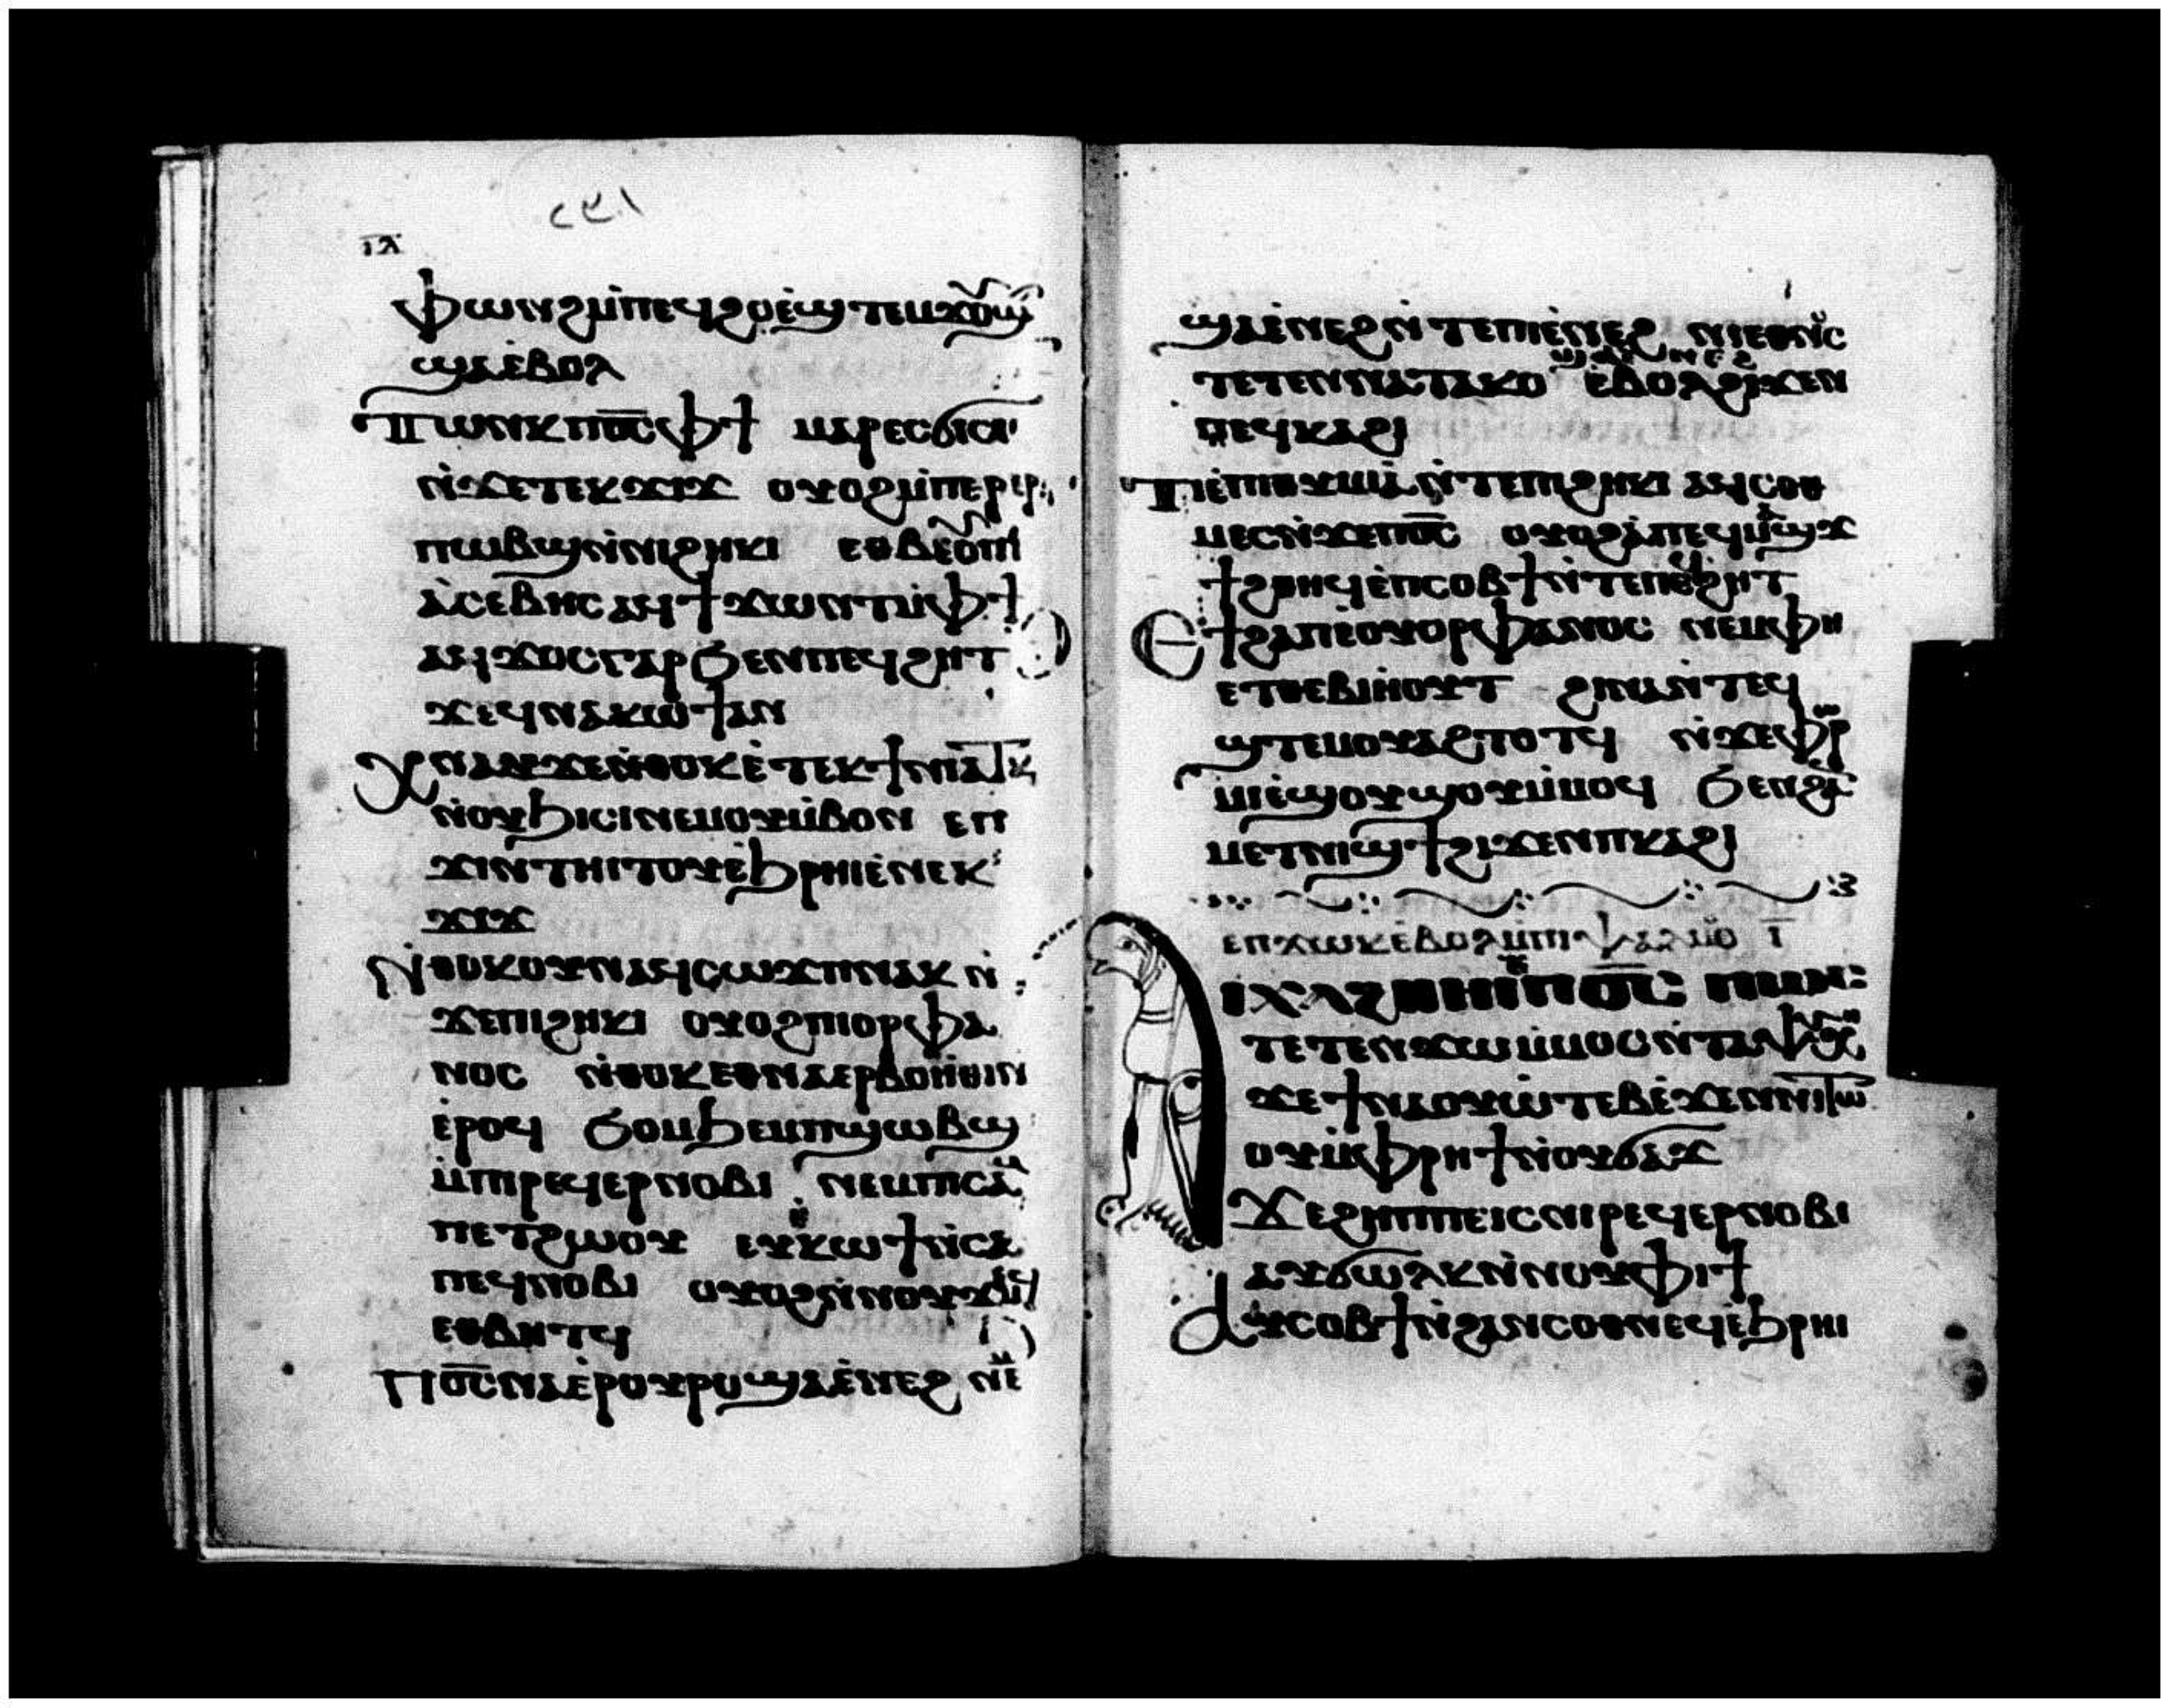 ⲓⲁ
ⲫⲱⲛϩ ⲙ̇ⲡⲉϥϩⲟ ⲉ̇ϣⲧⲉⲙϫⲟⲩϣⲧ
ϣⲁⲉ̇ⲃⲟⲗ
ⲧⲱⲛⲕ ⲡⲟ̅ⲥ̅ ⲫϯ ⲙⲁⲣⲉⲥϭⲓⲥⲓ
ⲛ̇ϫⲉⲧⲉⲕϫⲓϫ ⲟⲩⲟϩ ⲙ̇ⲡⲉⲣⲉⲣ
ⲡⲱⲃϣ ⲛ̇ⲛⲓϩⲏⲕⲓ ⲉⲑⲃⲉⲟⲩ ⲡⲓ
ⲁ̇ⲥⲉⲃⲏⲥ ⲁϥϯϫⲱⲛⲧ ⲙ̇ⲫϯ
ⲁϥϫⲟⲥ ⲅⲁⲣ ϧⲉⲛⲡⲉϥϩⲏⲧ
ϫⲉϥⲛⲁⲕⲱϯ ⲁⲛ
ⲭⲛⲁⲩ ϫⲉⲛ̇ⲑⲟⲕ ⲉ̇ⲧⲉⲕϯⲛⲓⲁⲧⲕ
ⲛ̇ⲟⲩϧⲓⲥⲓ ⲛⲉⲙⲟⲩⲙ̇ⲃⲟⲛ ⲉⲡ
ϫⲓⲛⲧⲏⲓⲧⲟⲩ ⲉ̇ϧⲣⲏⲓ ⲉ̇ⲛⲉⲕ
ϫⲓϫ
ⲛ̇ⲑⲟⲕ ⲟⲩⲛ ⲁϥⲥⲱϫⲡ ⲛⲁⲕ ⲛ̇
ϫⲉⲡⲓϩⲏⲕⲓ ⲟⲩⲟϩ ⲡⲓⲟⲣⲫⲁ
ⲛⲟⲥ ⲛ̇ⲑⲟⲕ ⲉⲑⲛⲁⲉⲣⲃⲟⲏ̇ⲑⲓⲛ
ⲉ̇ⲣⲟϥ ϧⲟⲙϧⲉⲙ ⲡϣⲱⲃϣ
ⲙ̇ⲡⲓⲣⲉϥⲉⲣⲛⲟⲃⲓ ⲛⲉⲙⲡⲓⲥⲁⲙ
ⲡⲉⲧϩⲱⲟⲩ ⲉⲩⲕⲱϯ ⲛ̇ⲥⲁ
ⲡⲉϥⲛⲟⲃⲓ ⲟⲩⲟϩ ⲛ̇ⲛⲟⲩϫⲉⲙϥ
ⲉⲑⲃⲏⲧϥ
ⲡⲟ̅ⲥ̅ ⲛⲁⲉ̇ⲣⲟⲩⲣⲟ ϣⲁⲉ̇ⲛⲉϩ ⲛⲉⲙ
ϣⲁⲉ̇ⲛⲉϩ ⲛ̇ⲧⲉⲡⲓⲉ̇ⲛⲉϩ ⲛⲓⲉⲑⲛⲟⲥ
ⲧⲉⲧⲉⲛⲛⲁⲧⲁⲕⲟ ⲉ̇ⲃⲟⲗϩⲓϫⲉⲛ
ⲡⲉϥⲕⲁϩⲓ
ⲧⲉ̇ⲡⲓⲑⲩⲙⲓⲁ̇ ⲛ̇ⲧⲉⲡⲓϩⲏⲕⲓ ⲁϥⲥⲟⲑ
ⲙⲉⲥ ⲛ̇ϫⲉⲡⲟ̅ⲥ̅ ⲟⲩⲟϩ ⲁ̇ⲡⲉϥⲙⲁϣϫ
ϯϩⲑⲏϥ ⲉ̇ⲡⲥⲟⲃϯ ⲛ̇ⲧⲉⲡⲉϥϩⲏⲧ
ⲉϯϩⲁⲡ ⲉⲟⲩⲟⲣⲫⲁⲛⲟⲥ ⲛⲉⲙⲫⲏ
ⲉⲧⲑⲉⲃⲓⲏⲟⲩⲧ ϩⲓⲛⲁ ⲛ̇ⲧⲉϥ
ϣⲧⲉⲙⲟⲩⲁϩⲧⲟⲧϥ ⲛ̇ϫⲉⲫⲣⲱ
ⲙⲓ ⲉ̇ϣⲟⲩϣⲟⲩ ⲙ̇ⲙⲟϥ ϧⲉⲛϩⲁⲛ
ⲙⲉⲧⲛⲓϣϯ ϩⲓϫⲉⲛⲡⲕⲁϩⲓ
ⲉⲡϫⲱⲕ ⲉ̇ⲃⲟⲗ ⲙ̇ⲡⲓⲯⲁⲗⲙⲟ ⲓ̅
ⲁⲓⲭⲁϩⲑⲏⲓ ⲙ̇ⲡⲟ̅ⲥ̅ ⲡⲱⲥ
ⲧⲉⲧⲉⲛϫⲱ ⲙ̇ⲙⲟⲥ ⲛ̇ⲧⲁⲯⲩⲭⲏ
ϫⲉϯⲛⲁⲟⲩⲱ̇ⲧⲉⲃ ⲉ̇ϫⲉⲛⲛⲓⲧⲱ
ⲟⲩ ⲙ̇ⲫⲣⲏϯ ⲛ̇ⲟⲩϭⲁϫ
ϫⲉϩⲏⲡⲡⲉ ⲓⲥ ⲛⲓⲣⲉϥⲉⲣⲛⲟⲃⲓ
ⲁⲩϭⲱⲗⲕ ⲛ̇ⲛⲟⲩⲫⲓϯ
ⲁⲩⲥⲟⲃϯ ⲛ̇ϩⲁⲛⲥⲟⲑⲛⲉϥ ⲉ̇ϧⲣⲏⲓ